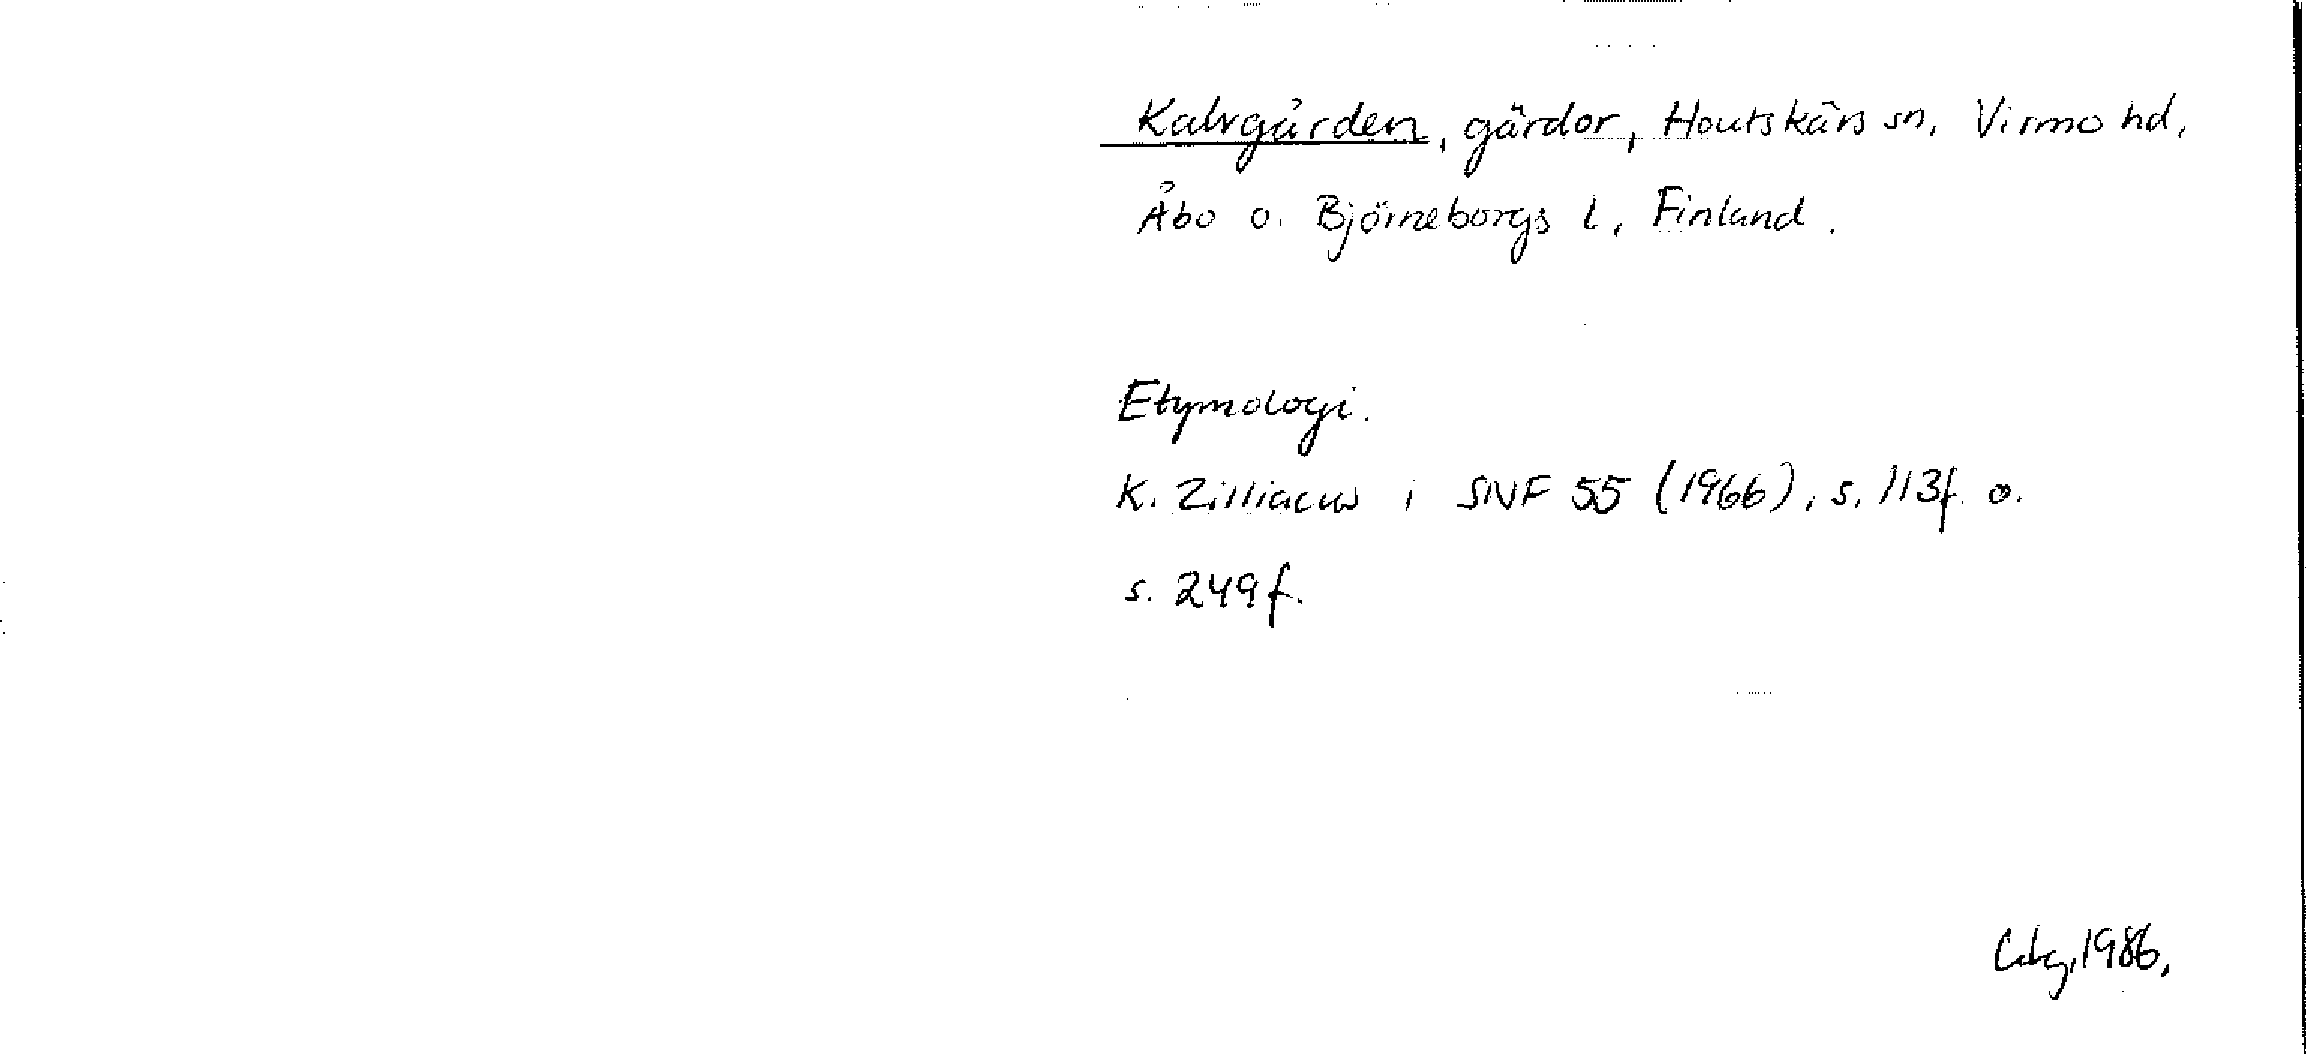 Kalvgården, gärdor, Houtskärs sn, Virmo hd,
Åbo o. Björneborgs l, Finland.
Etymologi.
K. Zilliacus i SNF 55 (1966), s. 113f. o.
s. 249f.
1986.